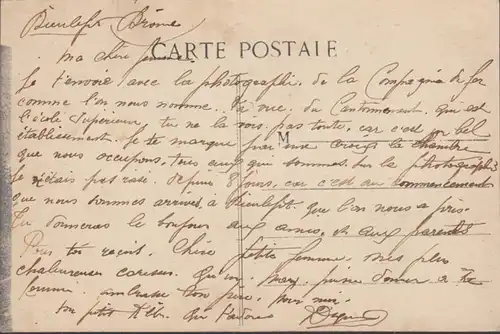 Dieulefit Drôme
CARTE POSTALE
ma chère femme.
Je t'envoie avec la photographie de la Compagnie de fer
comme l'on nous nomme. La vue du Cantonnement, qui est
l'école Supérieure, tu ne la vois pas toute, car c'est un bel
M
établissement. Je te marque par une croix la chambre
que nous occupons, tous ceux qui sommes sur la photographie
Je n'étais pas rasé depuis 8 jours, car c'est au commencement
que nous sommes arrivés à Dieulefit que l'on nous a pris.
Tu donneras le bonjour aux amis, et aux parents
Reçois chère petite femme, mes plus
chaleureuses caresses. Qu'un mari puisse donner à
embrasse ton père pour moi.
ton petit qui t'adore